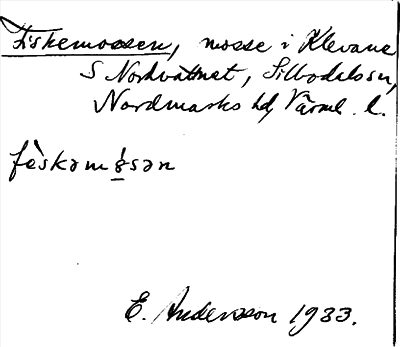 Fiskemossen, mosse i Klevane
S Nordvattnet, Silbodals sn,
Nordmarks hd, Värml. l.
fèskəmósən
E. Andersson 1933.